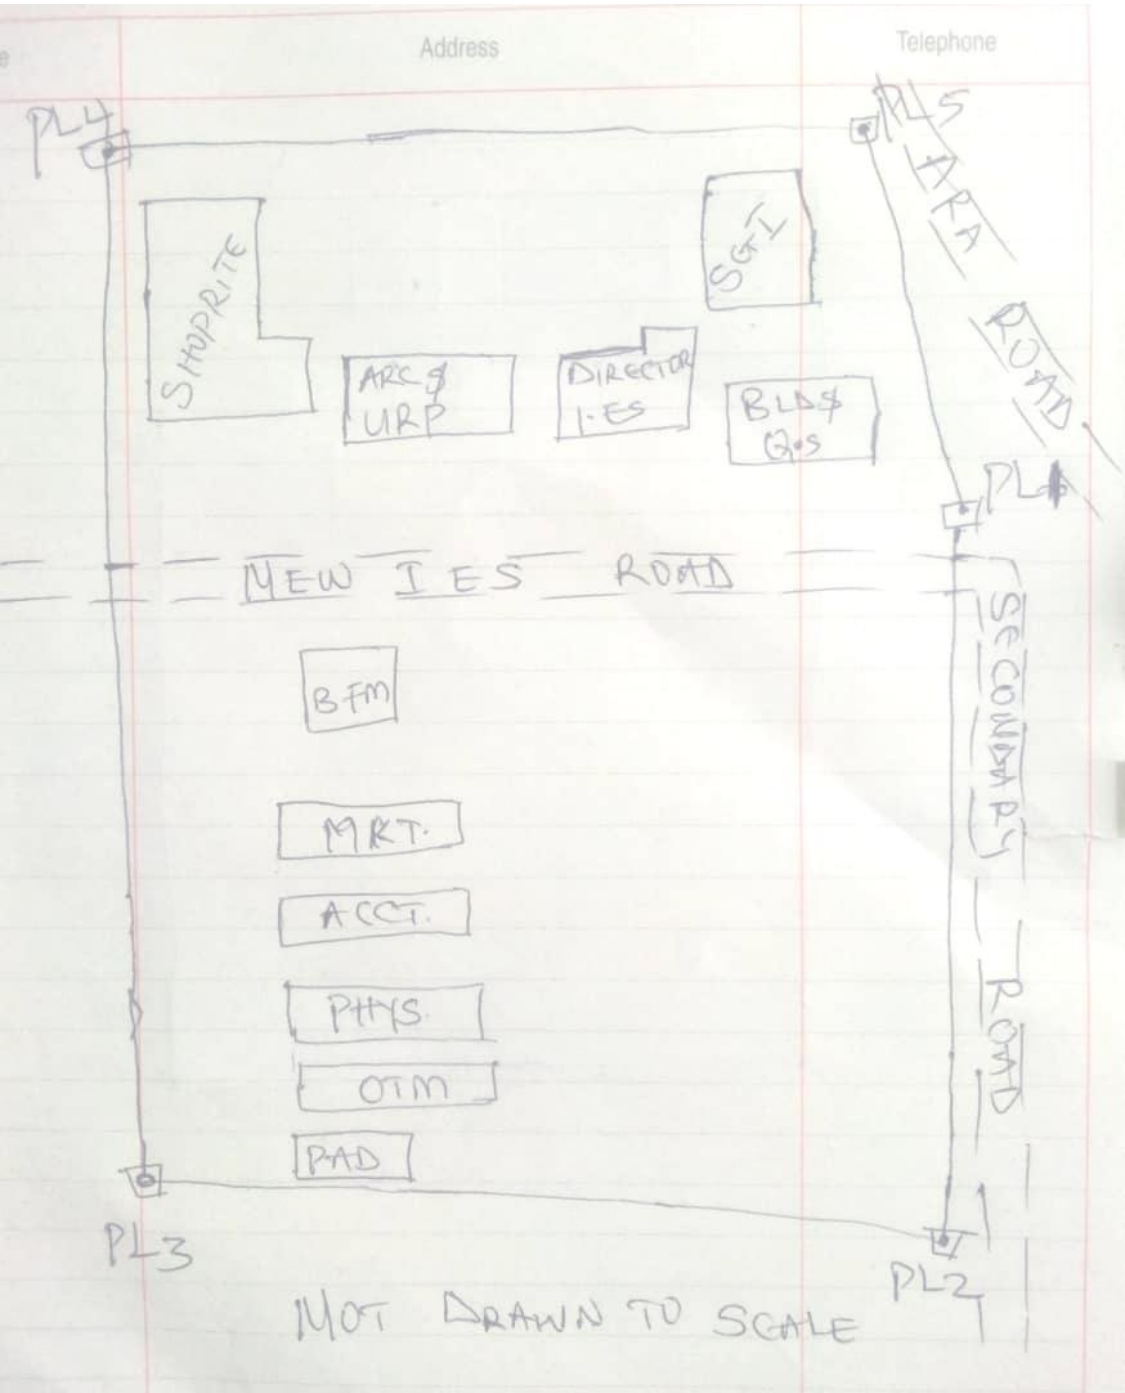 Address
Telephone
PL4
PL5
ARA ROAD
SHOPRITE
SGI
ARC $
URP
DIRECTOR
I.ES
BLD $
Q.S
PL1
NEW IES ROAD
SECONDARY ROAD
BFM
MKT.
ACCT.
PHYS.
OTM
PAD
PL3
PL2
NOT DRAWN TO SCALE